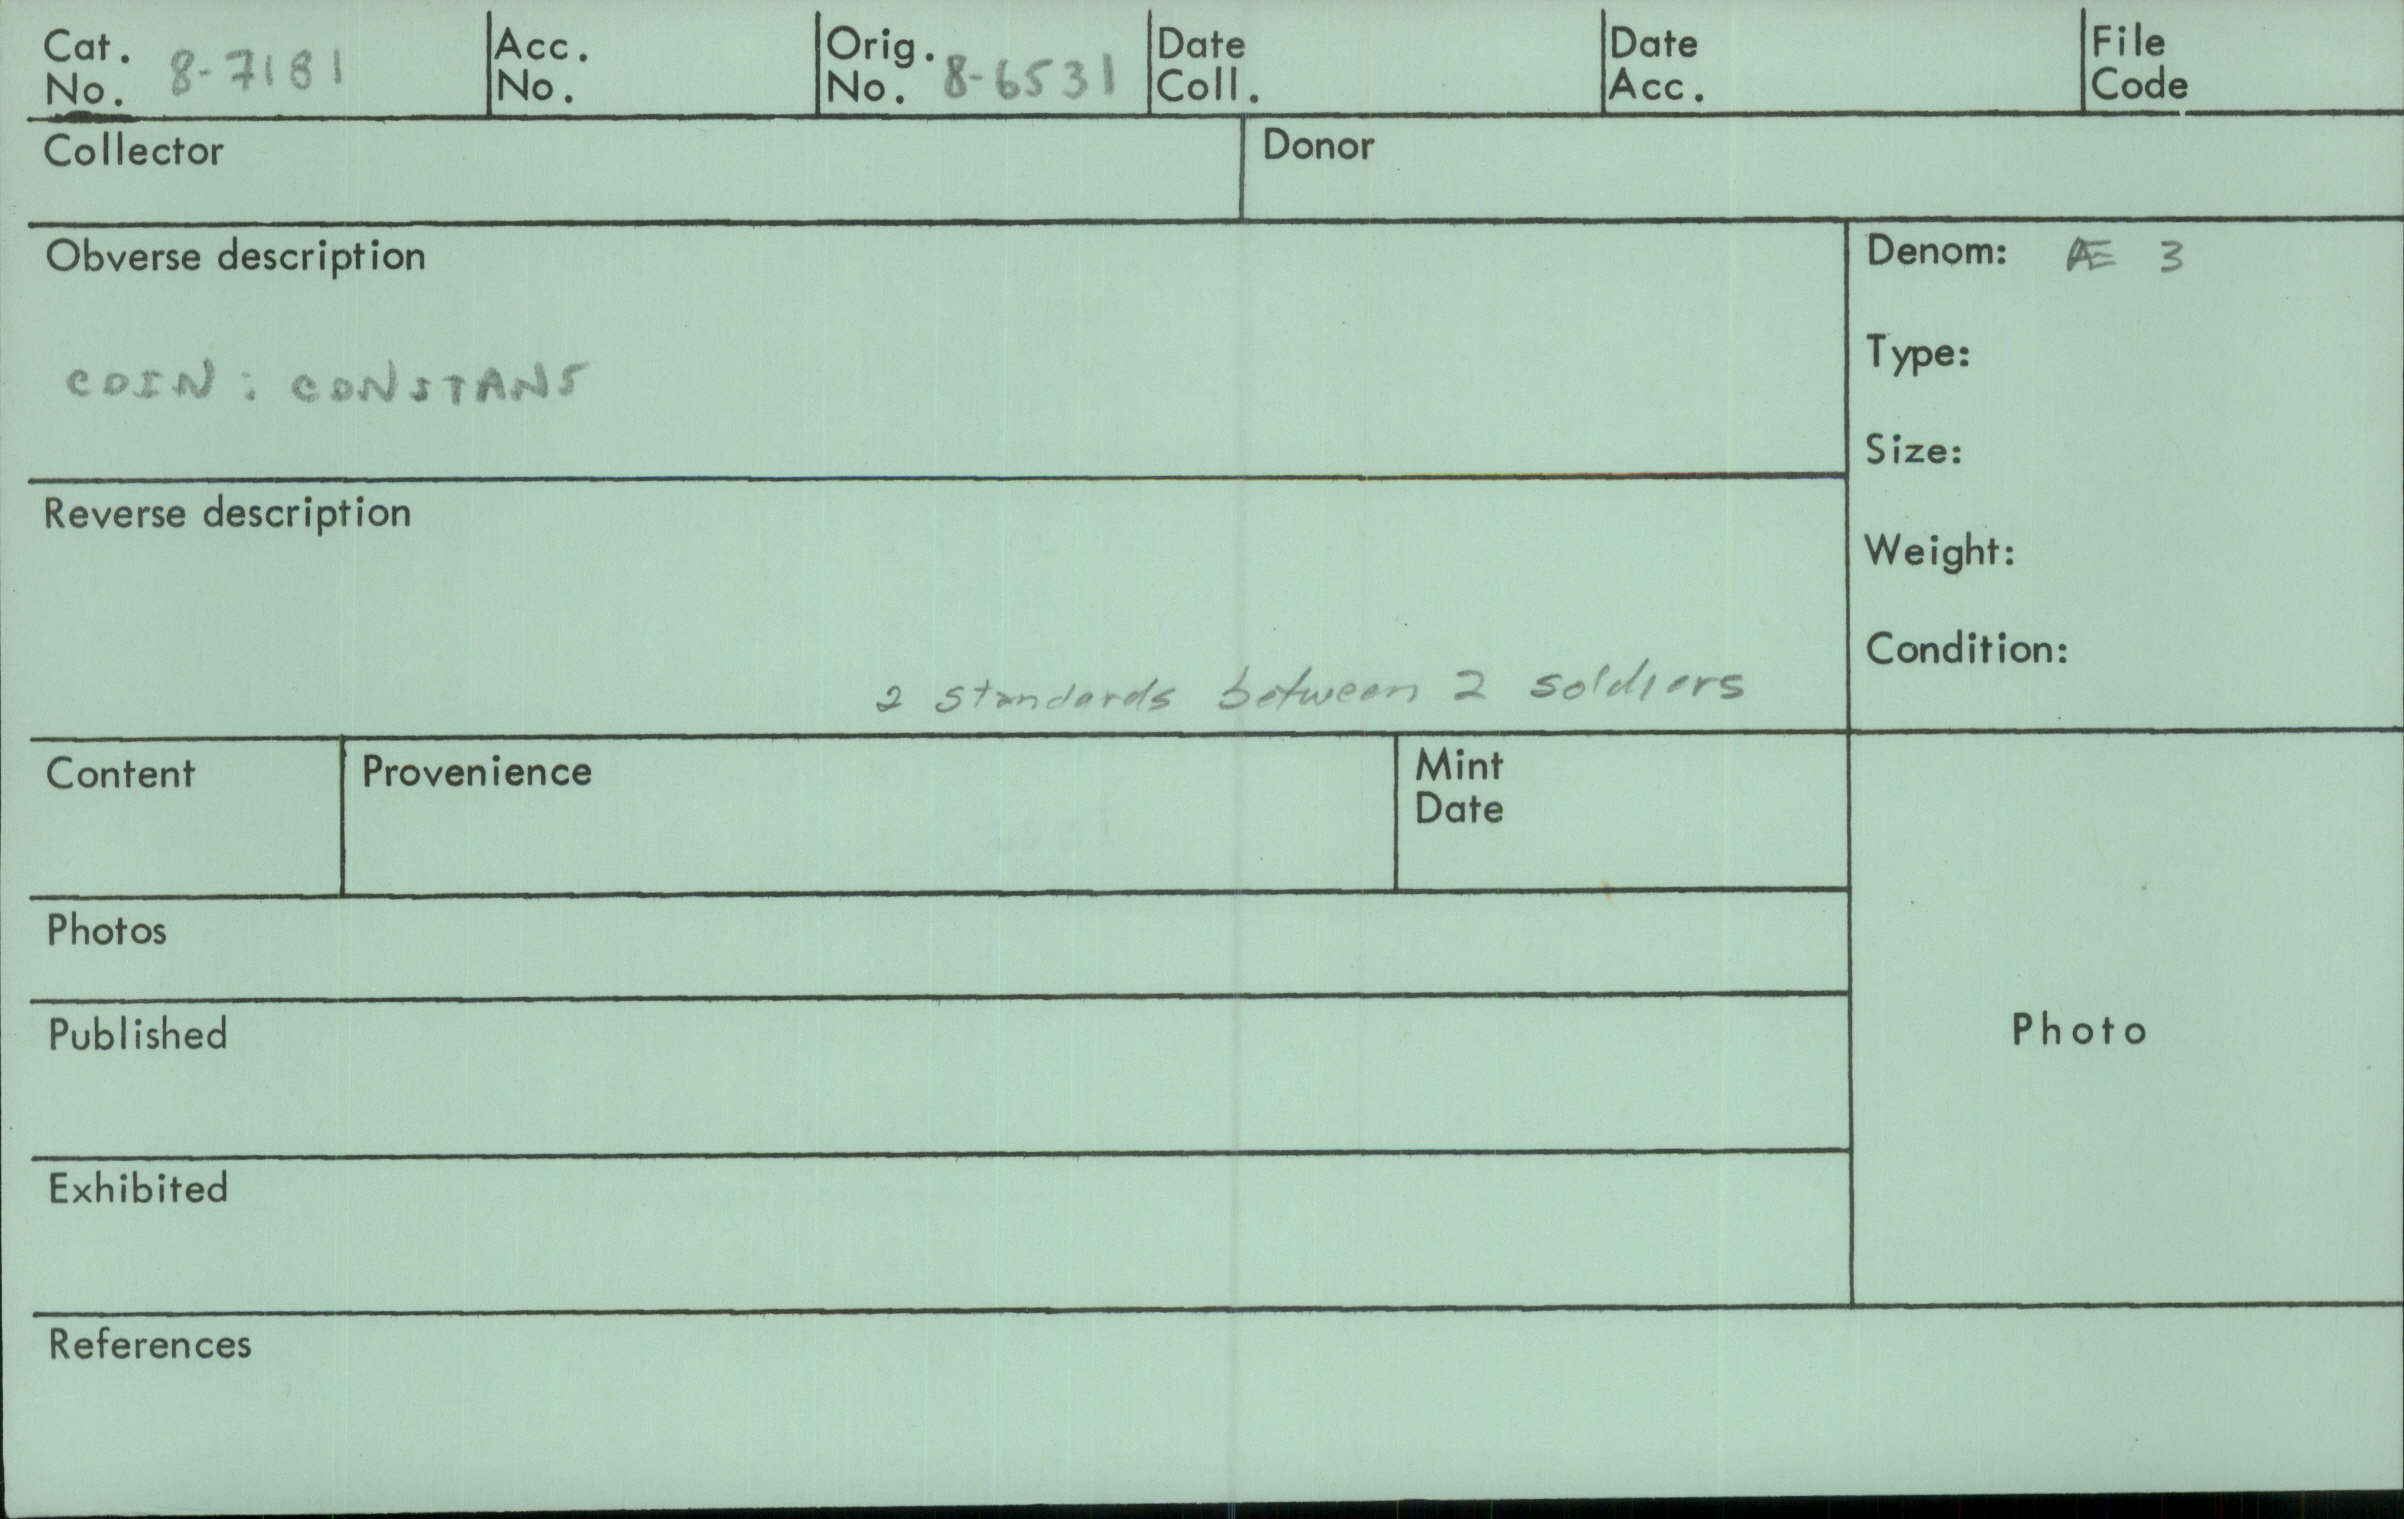 Cat. No. 8-7181
Acc. No.
Orig. No. 8-6531
Date Coll.
Date Acc.
File Code
Collector
Donor
Obverse description
COIN: CONSTANS
Denom: Æ 3
Type:
Size:
Weight:
Condition:
Reverse description
2 standards between 2 soldiers
Content
Provenience
Mint
Date
Photos
Published
Photo
Exhibited
References